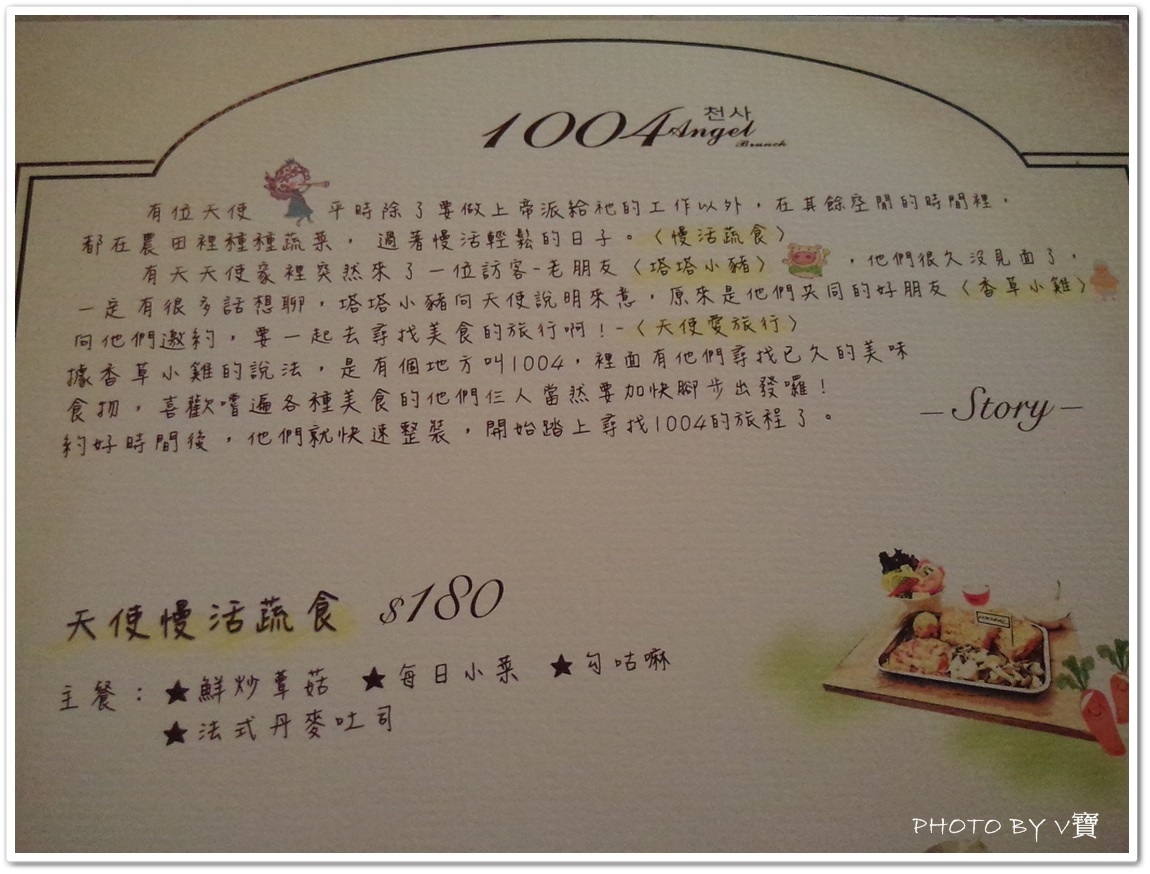 1004 천사
Angel
Brunch
有位天使 平時除了要做上帝派給祂的工作以外，在其餘空閒的時間裡，
都在農田裡種種蔬菜，過著慢活輕鬆的日子。〈慢活蔬食〉
有天天使家裡突然來了一位訪客-老朋友〈塔塔小豬〉 ，他們很久沒見面了，
一定有很多話想聊，塔塔小豬向天使說明來意，原來是他們共同的好朋友〈香草小雞〉
向他們邀約，要一起去尋找美食的旅行啊！-〈天使愛旅行〉
據香草小雞的說法，是有個地方叫1004，裡面有他們尋找已久的美味
食物，喜歡嚐遍各種美食的他們仨人當然要加快腳步出發囉！
約好時間後，他們就快速整裝，開始踏上尋找1004的旅程了。
– Story –
天使慢活蔬食 $180
主餐：★鮮炒蕈菇 ★每日小菜 ★勻咕嘛
★法式丹麥吐司
PHOTO BY V寶